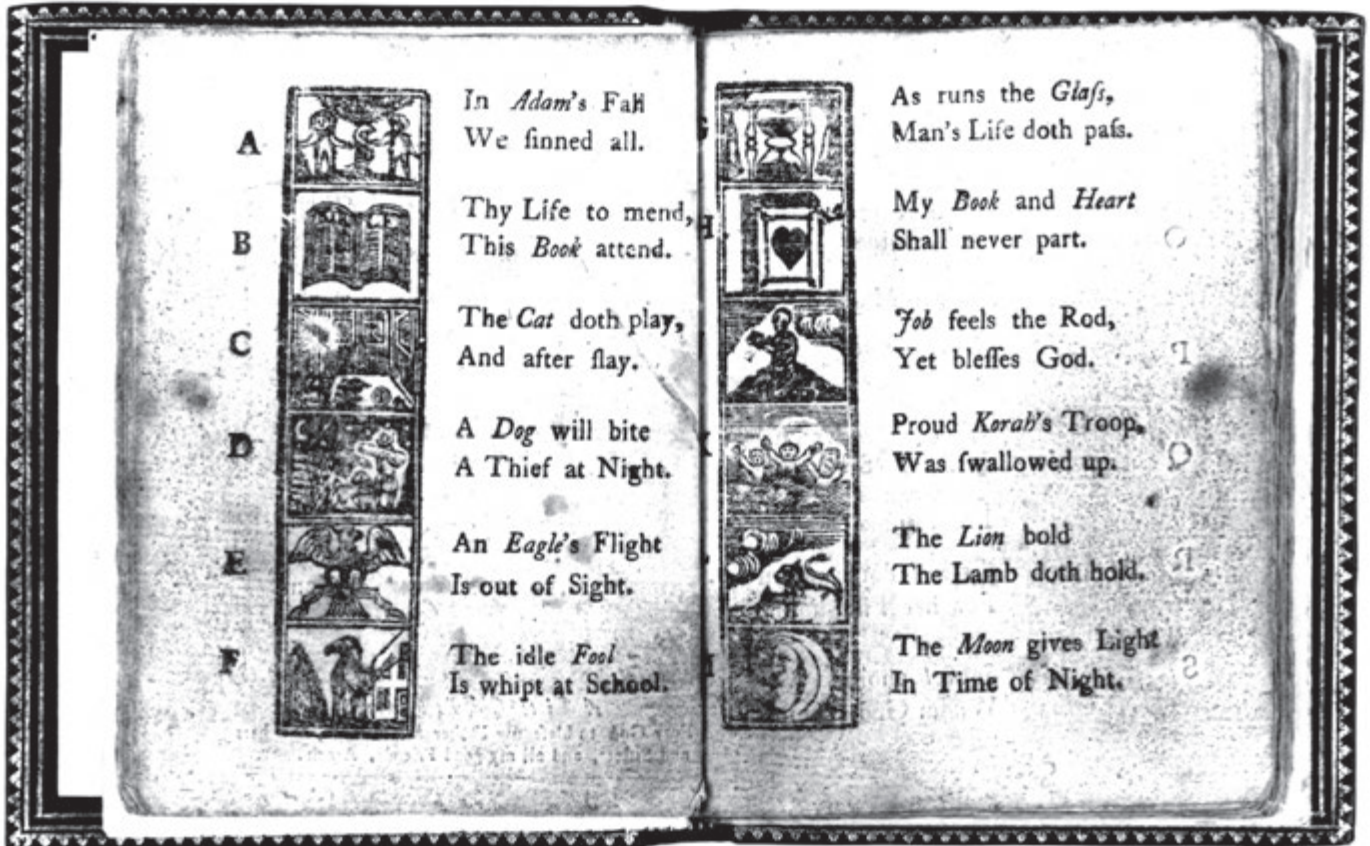 A
In Adam's Fall
We ſinned all.
B
Thy Life to mend,
This Book attend.
C
The Cat doth play,
And after ſlay.
D
A Dog will bite
A Thief at Night.
E
An Eagle's Flight
Is out of Sight.
F
The idle Fool
Is whipt at School.
As runs the Glaſs,
Man's Life doth paſs.
H
My Book and Heart
Shall never part.
Job feels the Rod,
Yet bleſſes God.
K
Proud Korah's Troop,
Was ſwallowed up.
The Lion bold
The Lamb doth hold.
The Moon gives Light
In Time of Night.